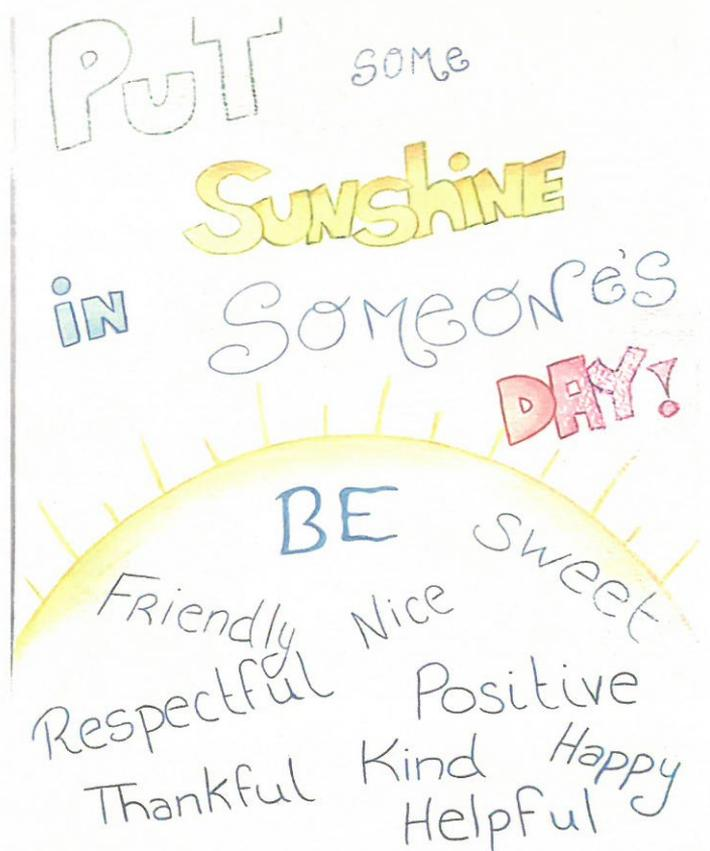 PUT SOME
SUNSHINE
iN SOMEONE'S
DAY!
BE
Sweet
Friendly Nice
Respectful Positive
Thankful Kind Happy
Helpful